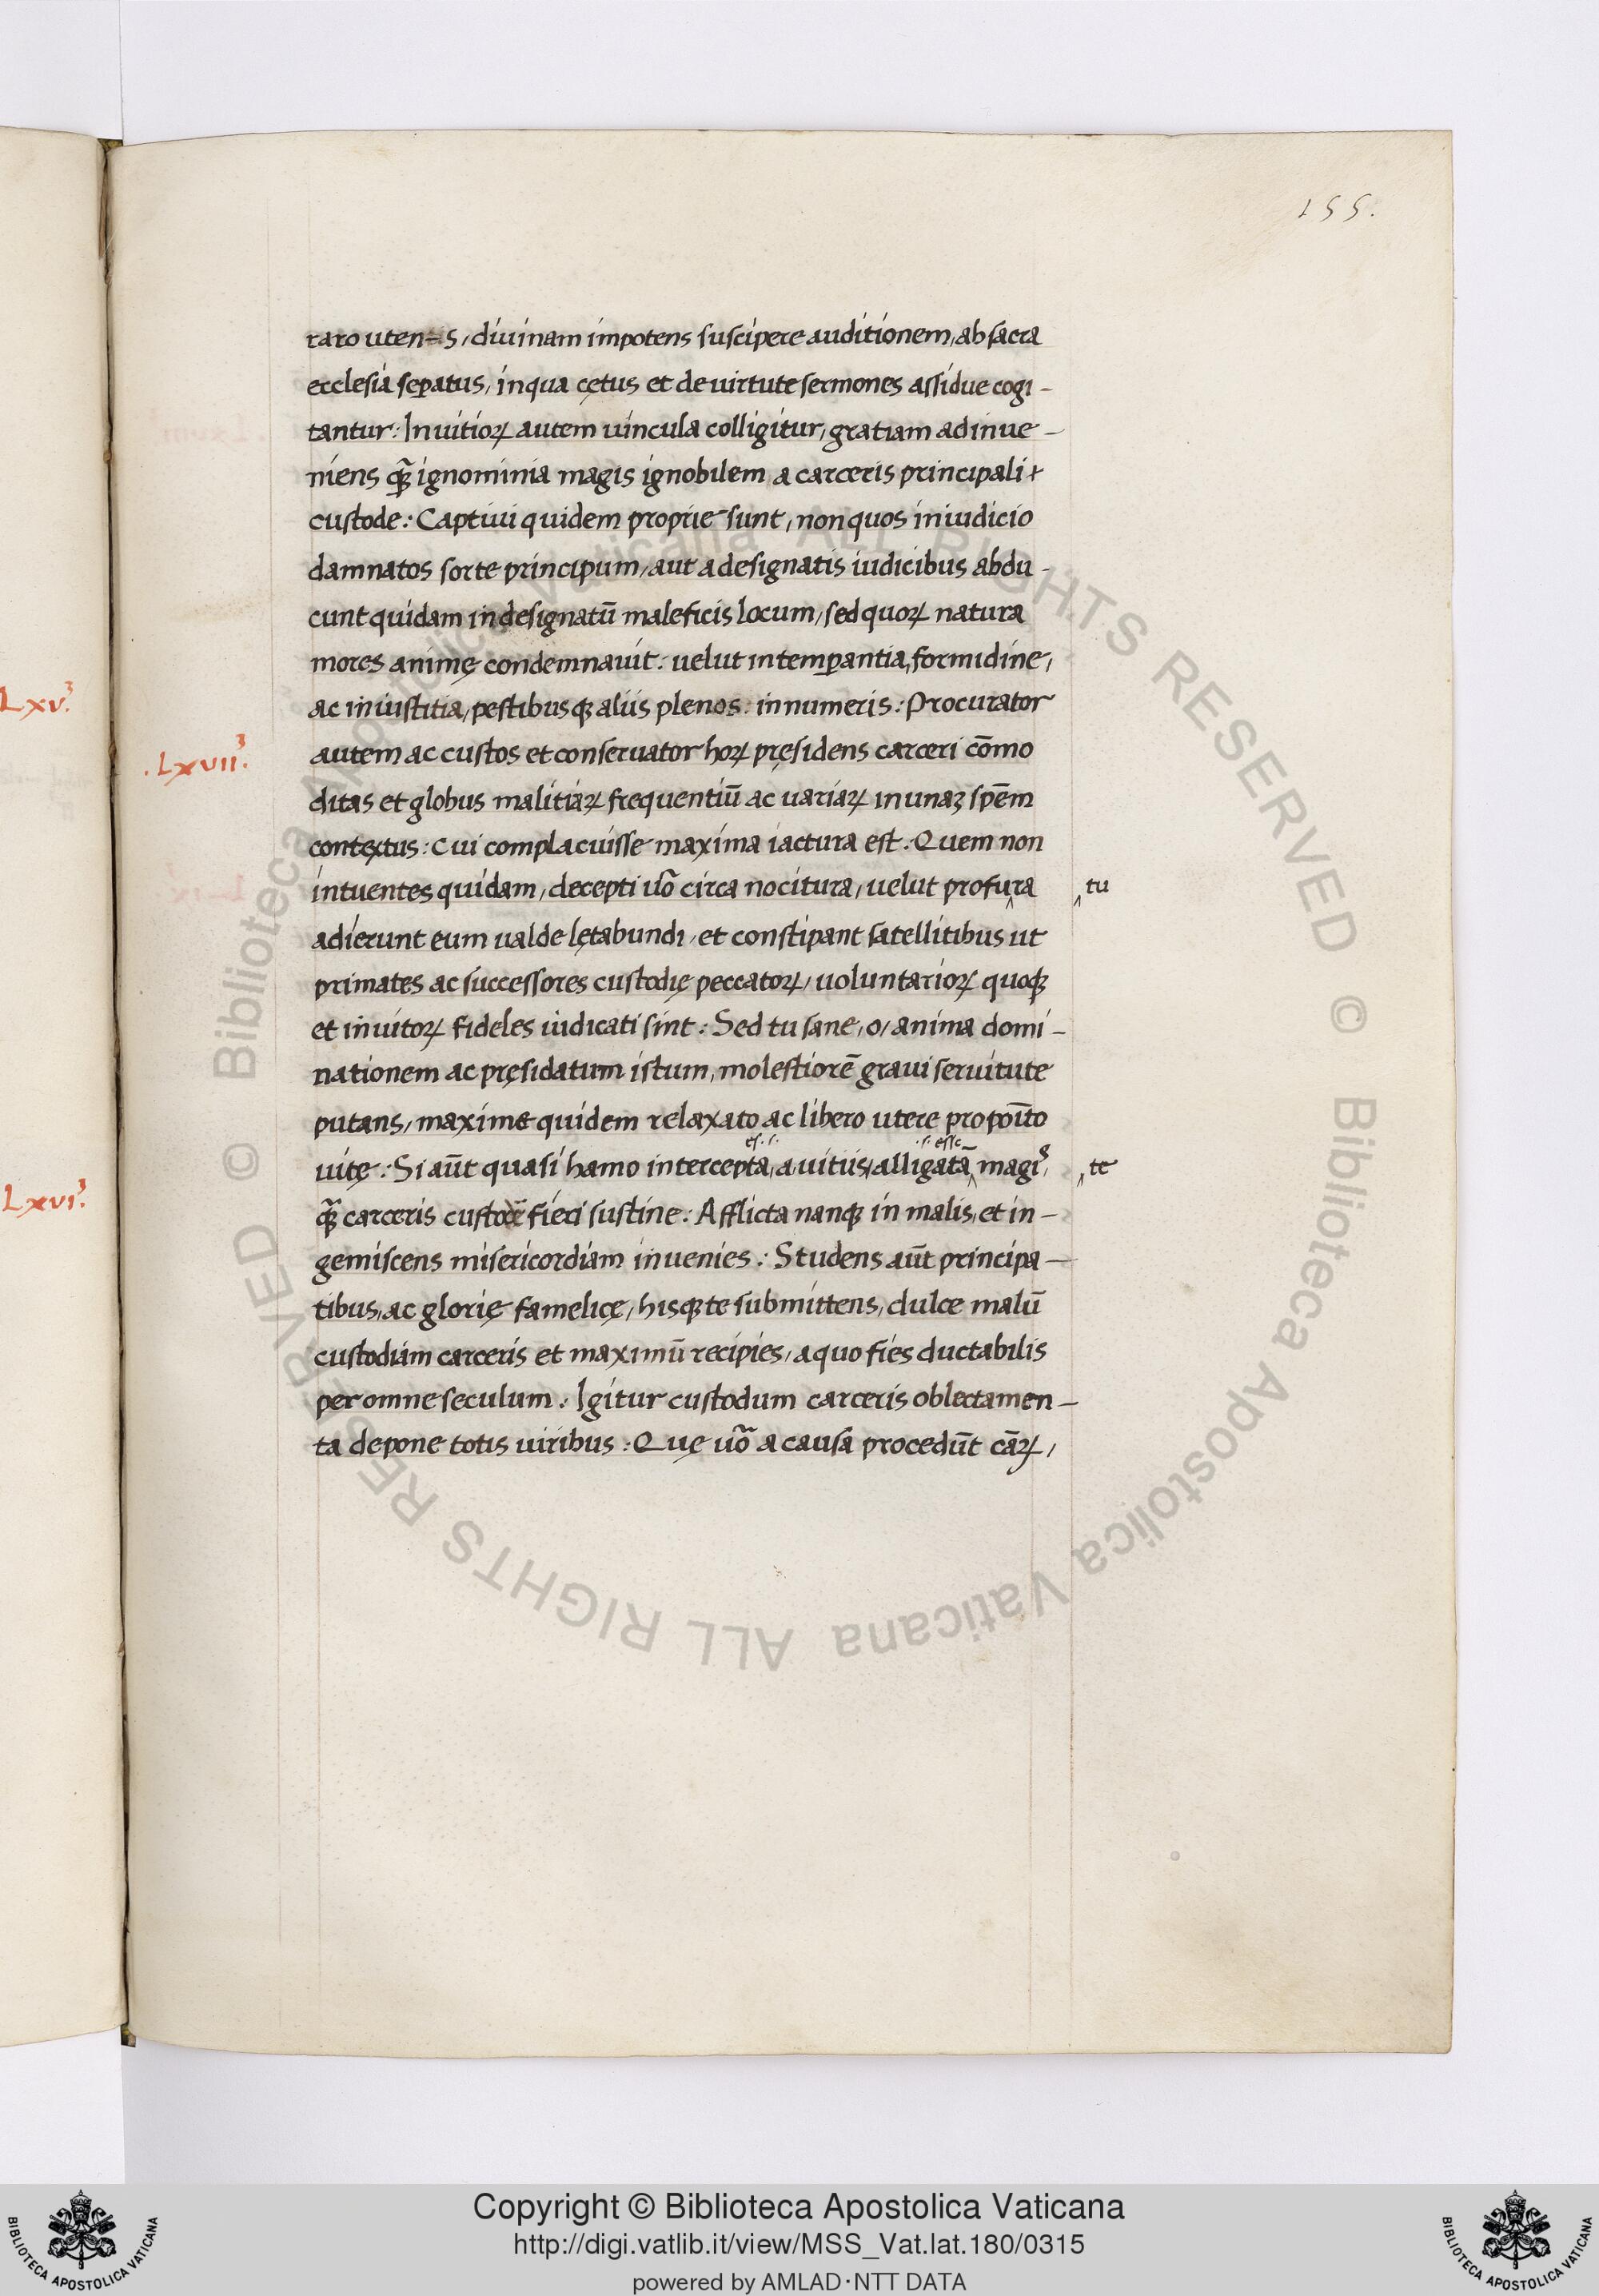 155.
raro uten=s, diuinam impotens suscipere auditionem, ab sacra
ecclesia seꝑatus, in qua cętus et de uirtute sermones assidue cogi-
tantur: In uitioꝝ autem uincula colligitur, gratiam adinue-
niens qꝫ̃ ignominia magis ignobilem a carceris principali
custode: Captiui quidem proprie sunt, non quos in iudicio
damnatos sorte principum, aut a designatis iudicibus abdu-
cunt quidam in designatū maleficis locum, sed quoꝝ natura
mores animę condemnauit: uelut intemꝑantia, formidine,
ac iniustitia, pestibusqꝫ aliis plenos innumeris: Procurator
.LXVII.³
autem ac custos et conseruator hoꝝ pręsidens carceri cōmo
ditas et globus malitiaꝝ frequentiū ac uariaꝝ in unaꝫ spēm
contextus: cui complacuisse maxima iactura est. Quem non
intuentes quidam, decepti uõ circa nocitura, uelut profu‸ra ‸tu
adierunt eum ualde lętabundi, et constipant satellitibus ut
primates ac successores custodię peccatoꝝ, uoluntarioꝝ quoqꝫ
et inuitoꝝ fideles iudicati sint: Sed tu sane, o, anima domi-
nationem ac pręsidatum istum, molestiorē graui seruitute
putans, maxime quidem relaxato ac libero utere propoīto
es .s. .s. esse
uitę: Si aūt quasi hamo intercepta, a uitiis, alligatā‸ magis, ‸te
qꝫ̃ carceris custodē fieri sustine: Afflicta nanqꝫ in malis, et in-
gemiscens misericordiam inuenies: Studens aūt principa-
tibus, ac glorię famelicę, hisqꝫ te submittens, dulce malū
custodiam carceris et maximū recipies, a quo fies ductabilis
per omne seculum. Igitur custodum carceris oblectamen-
ta depone totis uiribus: Quę uõ a causa procedūt cāꝝ,
LXV.³
LXVI.³
© Biblioteca Apostolica Vaticana ALL RIGHTS RESERVED © Biblioteca Apostolica Vaticana ALL RIGHTS RESERVED
Copyright © Biblioteca Apostolica Vaticana
http://digi.vatlib.it/view/MSS_Vat.lat.180/0315
powered by AMLAD·NTT DATA
BIBLIOTECA APOSTOLICA VATICANA
BIBLIOTECA APOSTOLICA VATICANA